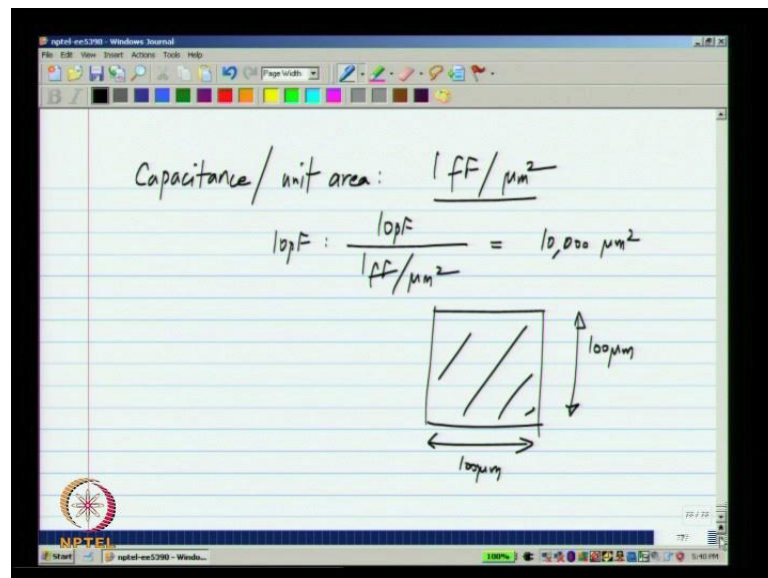 nptel-ee5390 - Windows Journal
File Edit View Insert Actions Tools Help
Page Width
B I
Capacitance / unit area: 1 fF / μm²
10pF : 10pF / 1fF/μm² = 10,000 μm²
100μm
100μm
NPTEL
Start nptel-ee5390 - Windo... 100% 5:40 PM